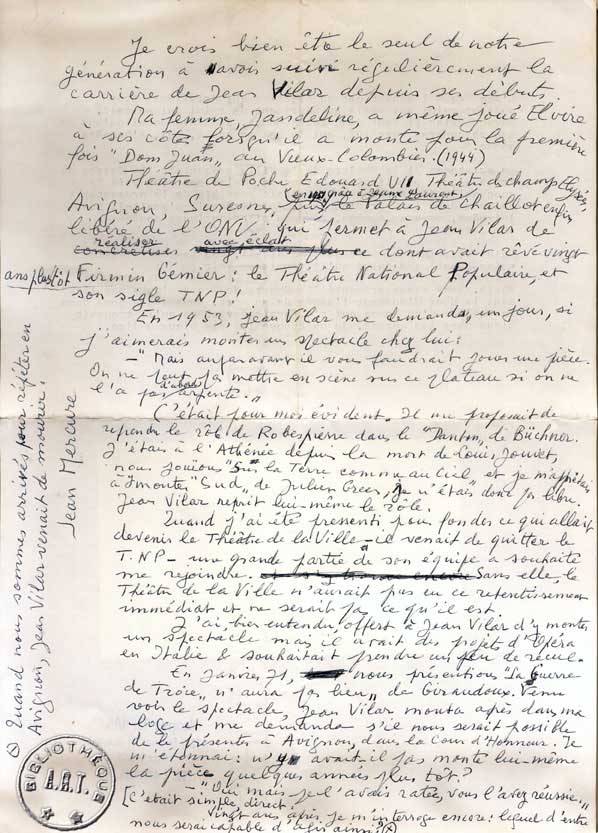 Je crois bien être le seul de notre
génération à avoir suivi régulièrement la
carrière de Jean Vilar depuis ses débuts.
Ma femme, Jandeline, a même joué Elvire
à ses côtés lorsqu'il a monté pour la première
fois "Dom Juan" au Vieux-Colombier. (1944)
Théâtre de Poche Edouard VII Théâtre des champs Elysées,
(en 1951 grâce à Jeanne Laurent)
Avignon, Suresnes, puis le Palais de Chaillot enfin
libéré de l'ONU, qui permet à Jean Vilar de
réaliser avec éclat
concrétiser vingt ans plus ce dont avait rêvé vingt
ans plus tôt Firmin Gémier : le Théâtre National Populaire, et
son sigle TNP !
En 1953, Jean Vilar me demanda, un jour, si
j'aimerais monter un spectacle chez lui :
- "Mais auparavant il vous faudrait jouer une pièce.
On ne peut pas mettre en scène sur ce plateau si on ne
d'abord
l'a pas arpenté."
C'était pour moi évident. Il me proposait de
reprendre le rôle de Robespierre dans le "Danton" de Büchner.
J'étais à l'Athénée depuis la mort de Louis Jouvet,
nous jouions "Sur la Terre comme au Ciel" et je m'apprêtais
à monter "Sud" de Julien Green, je n'étais donc pas libre.
Jean Vilar reprit lui-même le rôle.
Quand j'ai été pressenti pour fonder ce qui allait
devenir le Théâtre de la Ville - il venait de quitter le
T.N.P - une grande partie de son équipe a souhaité
me rejoindre. Sans elle, le
Théâtre de la Ville n'aurait pas eu ce retentissement
immédiat et ne serait pas ce qu'il est.
J'ai, bien entendu, offert à Jean Vilar d'y monter
un spectacle mais il avait des projets d'Opéra
en Italie & souhaitait prendre un peu de recul.
En Janvier 71, nous présentions "La Guerre
de Troie" n'aura pas lieu" de Giraudoux. Venu
voir le spectacle, Jean Vilar monta après dans ma
loge et me demanda s'il nous serait possible
de le présenter à Avignon, dans la Cour d'Honneur. Je
m'étonnai : n'y avait-il pas monté lui-même
la pièce quelques années plus tôt ?
- "Oui mais je l'avais ratée, vous l'avez réussie."
[C'était simple, direct.
Vingt ans après je m'interroge encore : lequel d'entre
nous serait capable d'agir ainsi ?
Quand nous sommes arrivés pour répéter en
Avignon, Jean Vilar venait de mourir.
Jean Mercure
BIBLIOTHÈQUE
A.R.T.